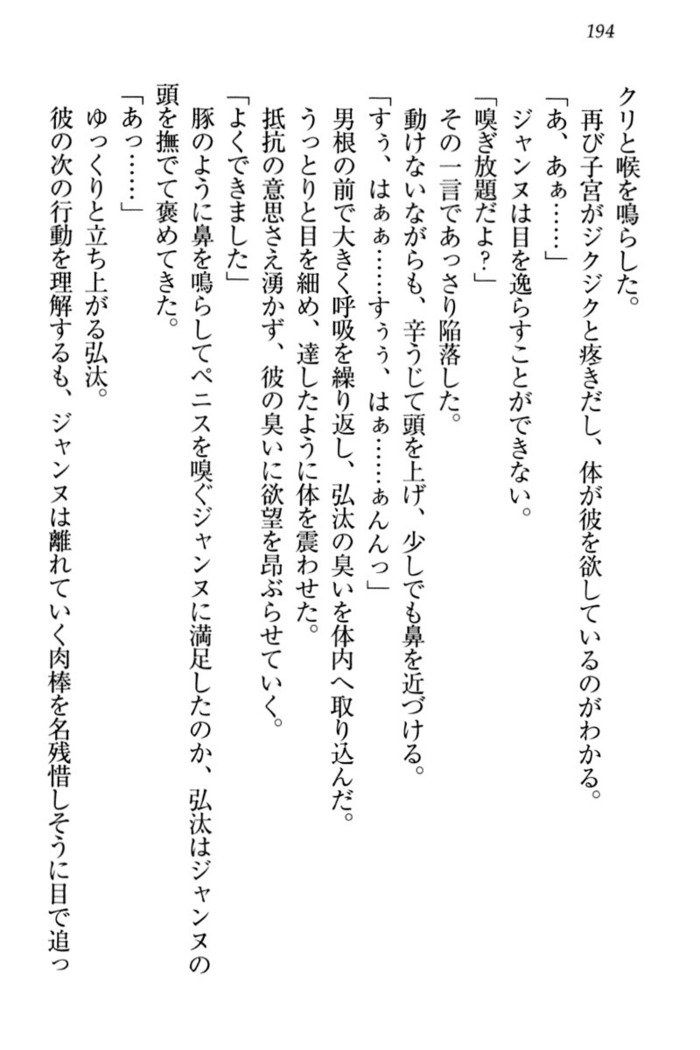 194
クリと喉を鳴らした。
再び子宮がジクジクと疼きだし、体が彼を欲しているのがわかる。
「あ、あぁ……」
ジャンヌは目を逸らすことができない。
「嗅ぎ放題だよ？」
その一言であっさり陥落した。
動けないながらも、辛うじて頭を上げ、少しでも鼻を近づける。
「すぅ、はぁぁ……すぅぅ、はぁ……ぁんんっ」
男根の前で大きく呼吸を繰り返し、弘汰の臭いを体内へ取り込んだ。
うっとりと目を細め、達したように体を震わせた。
抵抗の意思さえ湧かず、彼の臭いに欲望を昂ぶらせていく。
「よくできました」
豚のように鼻を鳴らしてペニスを嗅ぐジャンヌに満足したのか、弘汰はジャンヌの
頭を撫でて褒めてきた。
「あっ……」
ゆっくりと立ち上がる弘汰。
彼の次の行動を理解するも、ジャンヌは離れていく肉棒を名残惜しそうに目で追っ